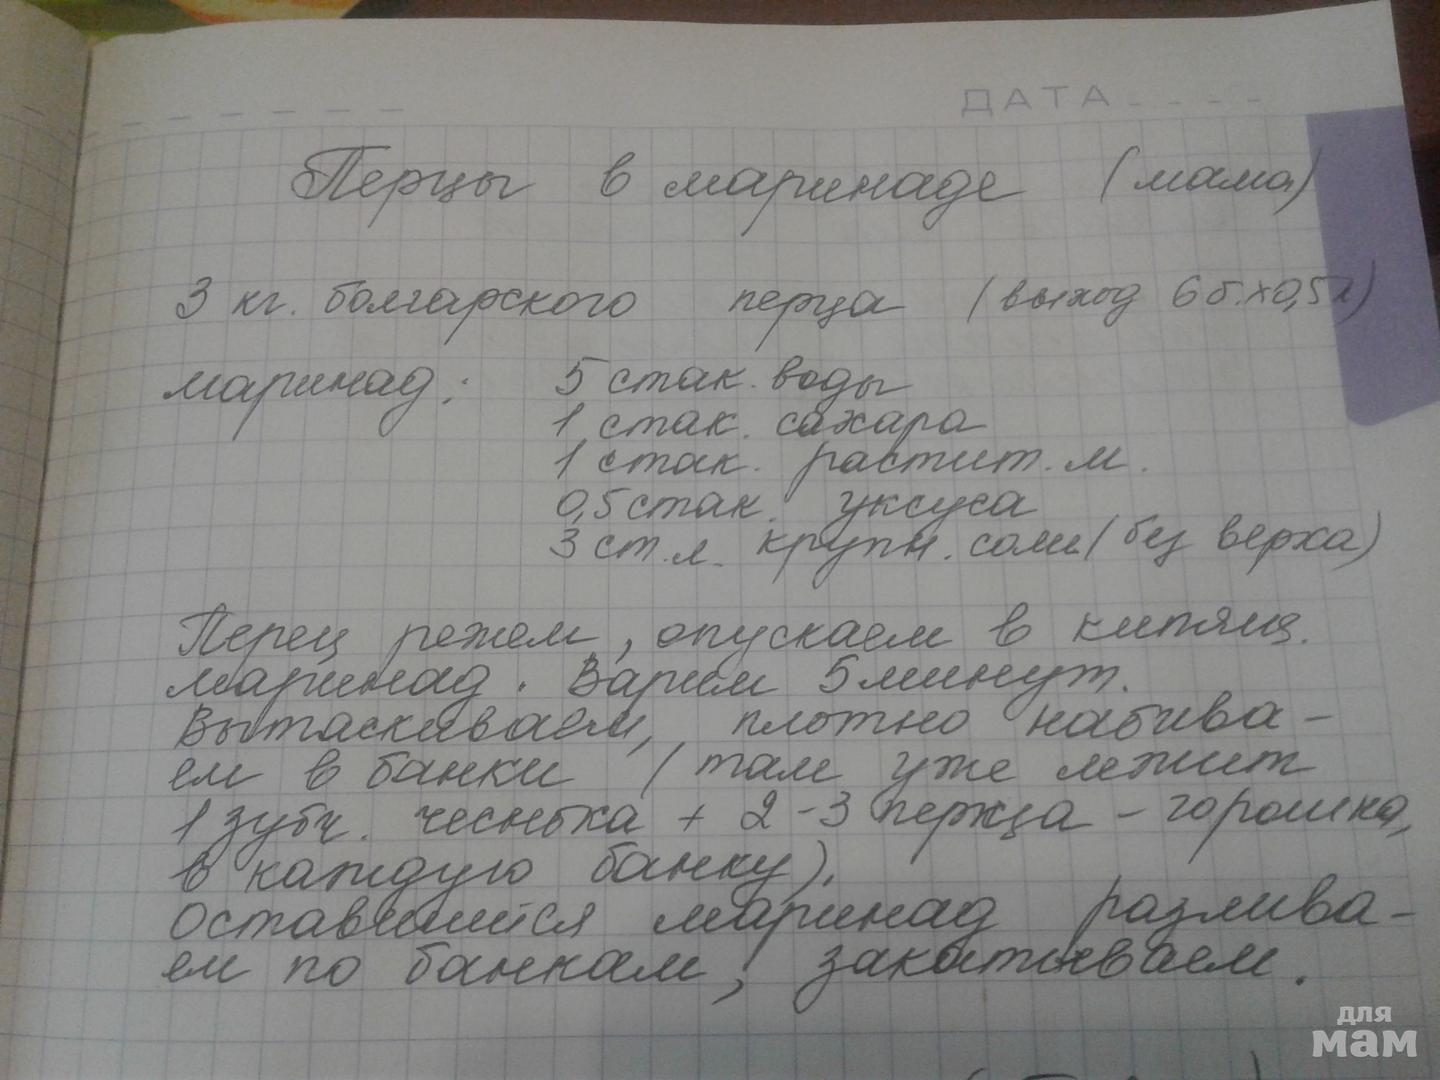 ДАТА
Перцы в маринаде (мама)
3 кг. болгарского перца (выход 6 б.х0,5л)
маринад: 5 стак. воды
1 стак. сахара
1 стак. растит. м.
0,5 стак. уксуса
3 ст.л. крупн. соли (без верха)
Перец режем, опускаем в кипящ.
маринад. Варим 5 минут.
Вытаскиваем, плотно набива-
ем в банки (там уже лежит
1 зубч. чеснока + 2-3 перца-горошка,
в каждую банку).
Оставшийся маринад разлива-
ем по банкам, закатываем.
для
мам